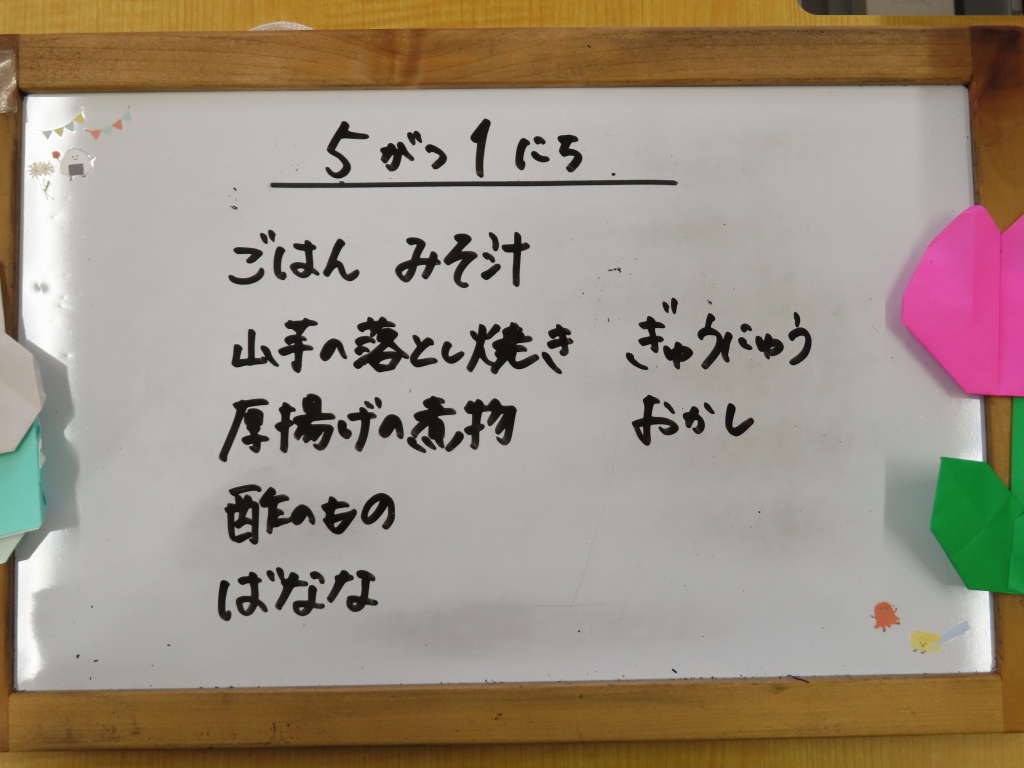 5がつ1にち
ごはん みそ汁
山芋の落とし焼き ぎゅうにゅう
厚揚げの煮物 おかし
酢のもの
ばなな